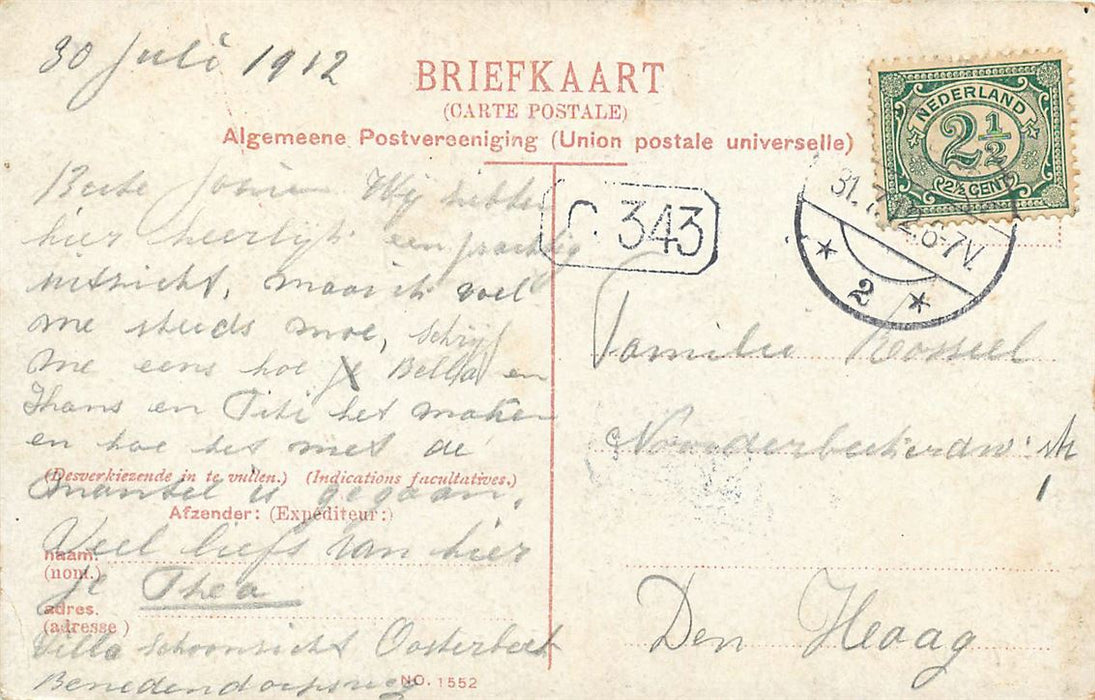 30 Juli 1912
BRIEFKAART
(CARTE POSTALE)
Algemeene Postvereeniging (Union postale universelle)
NEDERLAND
2½
2½ CENT
31.7.12.6-7V.
2
343
Beste Wij hebben
hier heerlijk een prachtig
uitzicht, maar ik voel
me steeds moe, schrijf
me eens hoe Bella en
Thans en Titi het maken
en hoe het met de
mantel is gegaan.
Veel liefs van hier
je Thea
Villa Schoonzicht Oosterbeek
Benedendorpsweg
(Desverkiezende in te vullen.) (Indications facultatives.)
Afzender: (Expéditeur:)
naam.
(nom.)
adres.
(adresse)
NO. 1552
Familie
Den Haag